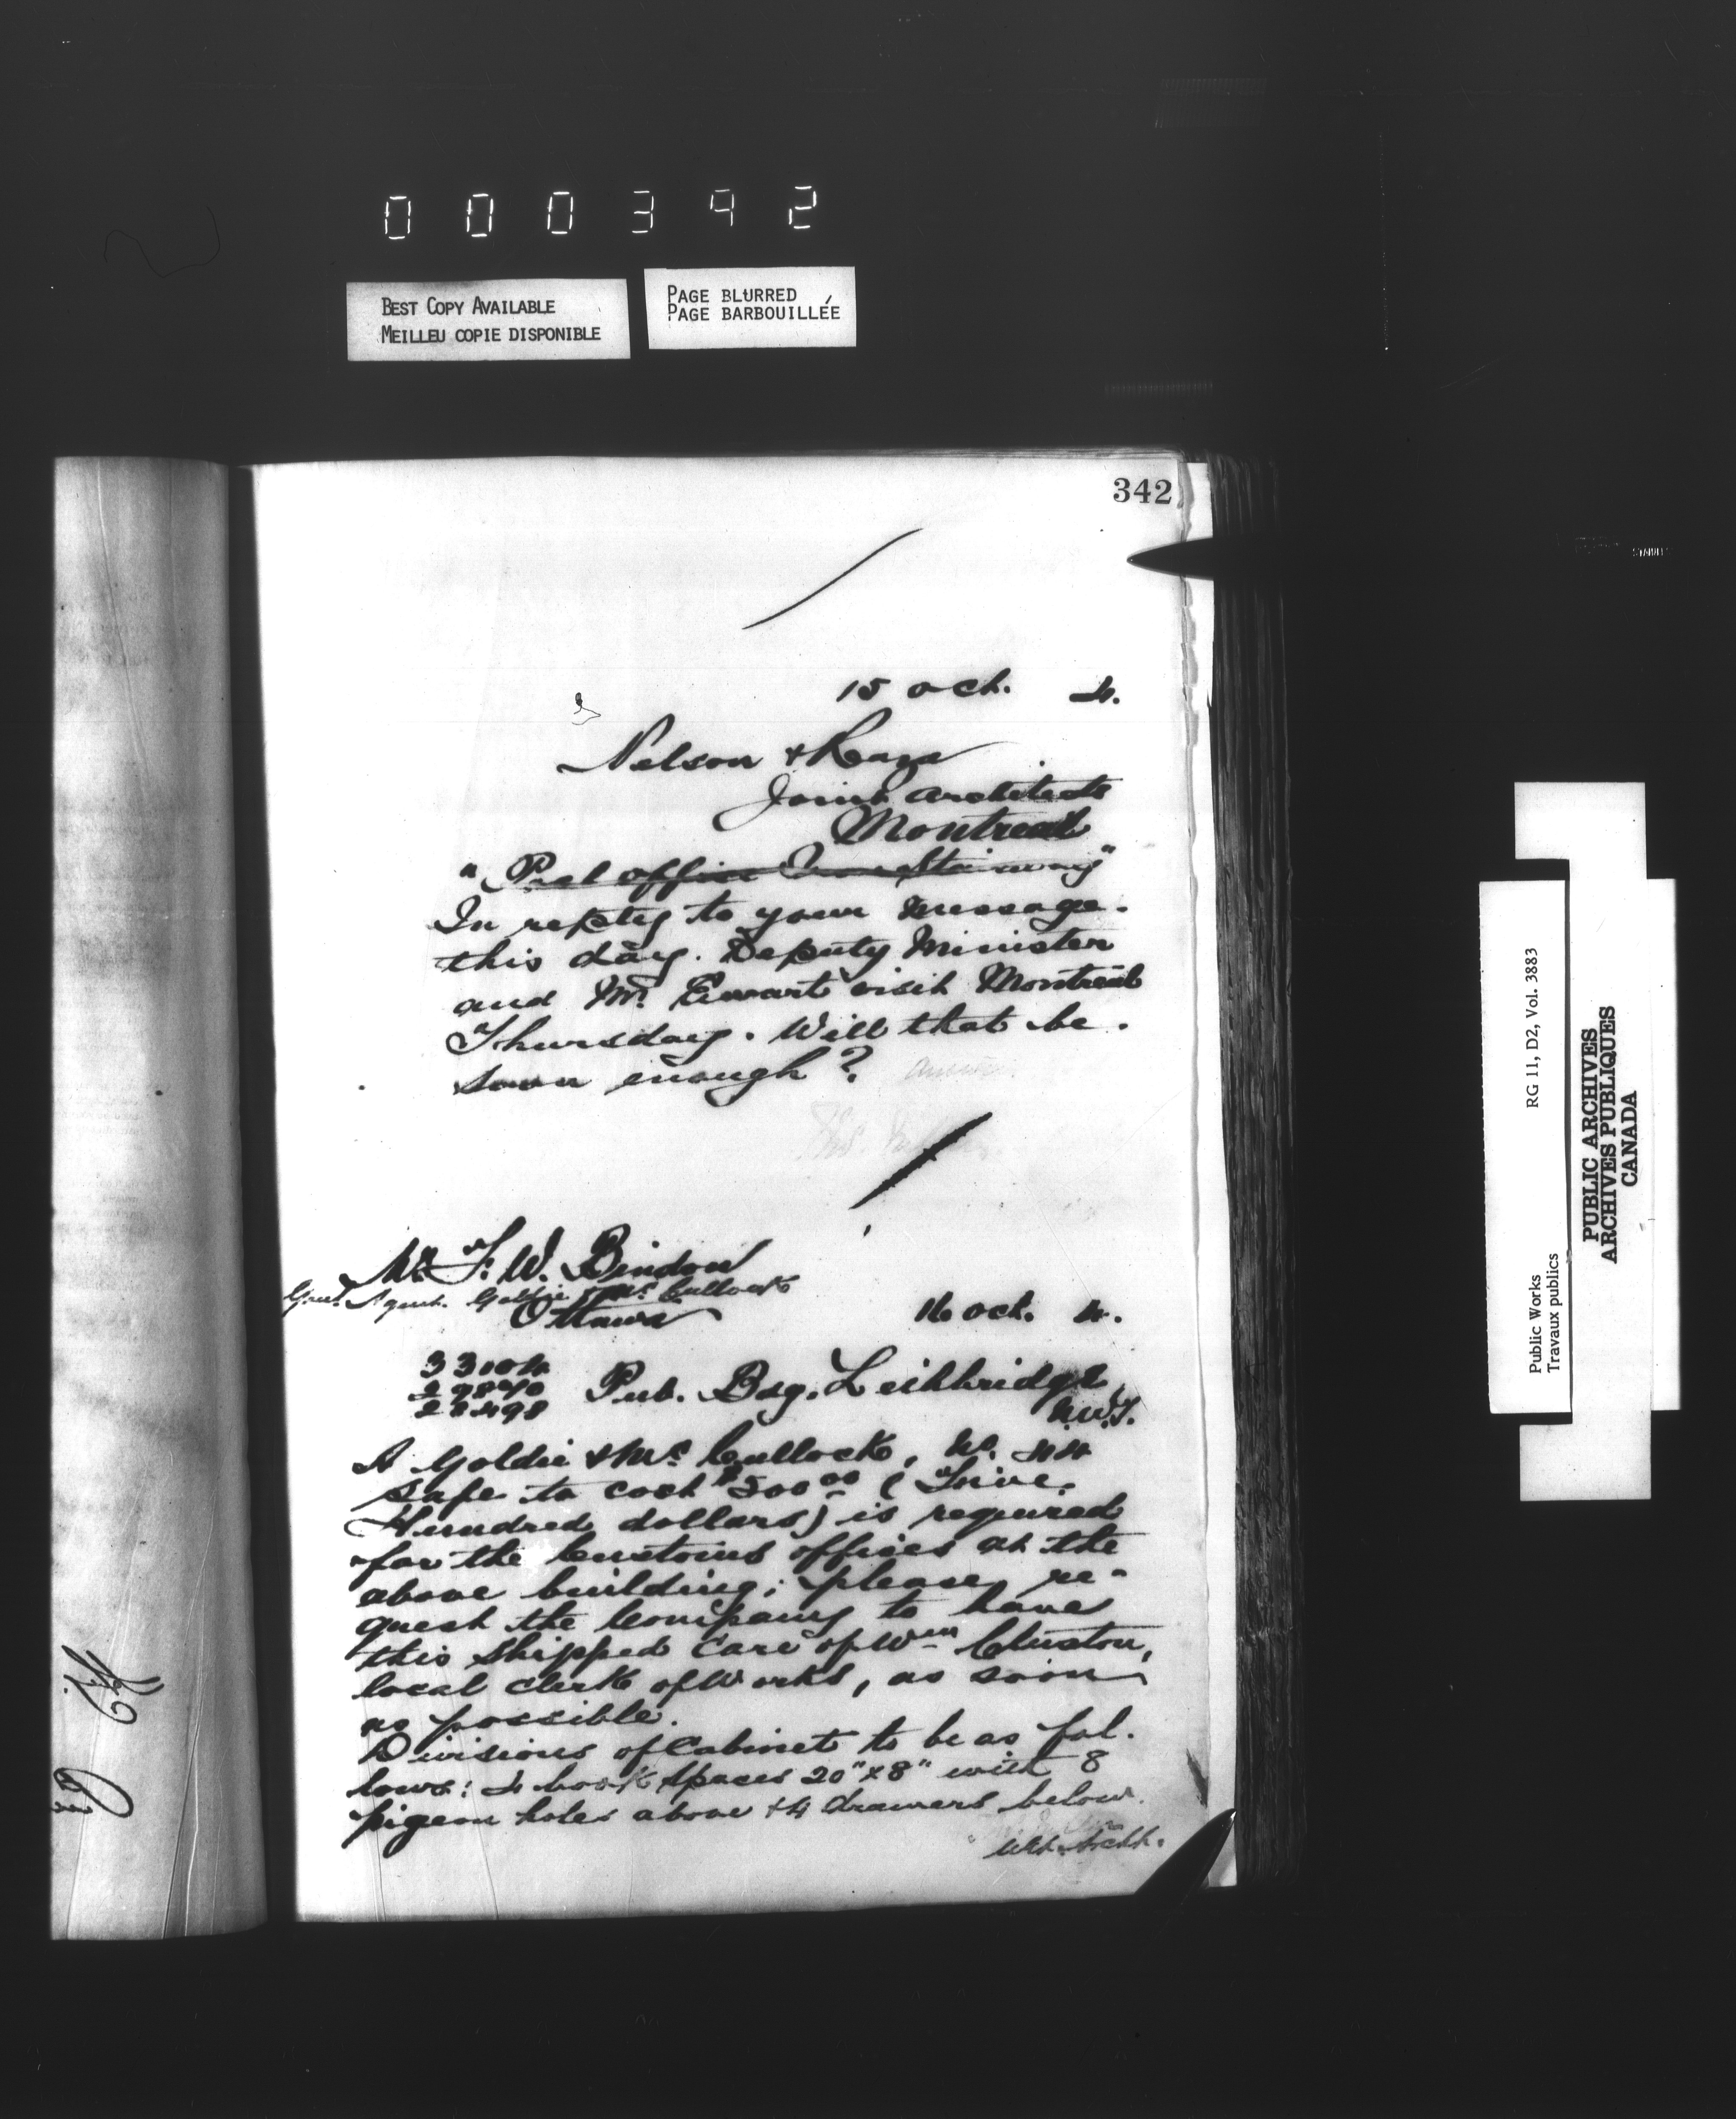 000342
BEST COPY AVAILABLE
MEILLEU COPIE DISPONIBLE
PAGE BLURRED
PAGE BARBOUILLÉE
342
15 Oct. 4.
Nelson &
Joint Architects
Montreal
"Post office Iron Stairway"
In reply to your message
this day. Deputy Minister
and Mr. Ewart visit Montreal
Thursday. Will that be
soon enough?
Mr. F. W. Bindon
Genl. Agent. Goldie & McCullock
Ottawa
16 Oct. 4.
Pub. Bdg. Leithbridge
N.W.T.
A Goldie & McCullock, No. 44
safe to cost $500.00 (Five
Hundred dollars) is required
for the Customs offices at the
above building; please re-
quest the Company to have
this shipped care of Wm
local clerk of Works, as soon
as possible.
Divisions of Cabinet to be as fol-
lows: 4 book spaces 20" x 8" with 8
pigeon holes above & 4 drawers below.
Archt.
Public Works RG 11, D2, Vol. 3883
Travaux publics
PUBLIC ARCHIVES
ARCHIVES PUBLIQUES
CANADA